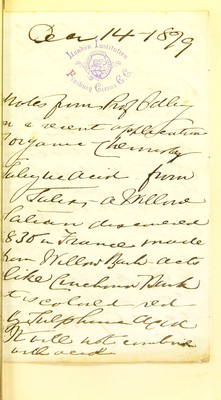 Dec 14-1899
London Institution
Finsbury Circus E.C.
Notes from Prof Odling
on a recent application
organic Chemistry
Salicylic Acid from
Salix, a Willow
Salicin discovered
1830 in France made
from Willow Bark acts
like Cinchona Bark
it is colored red
by Sulphuric Acid
It will not combine
with acid